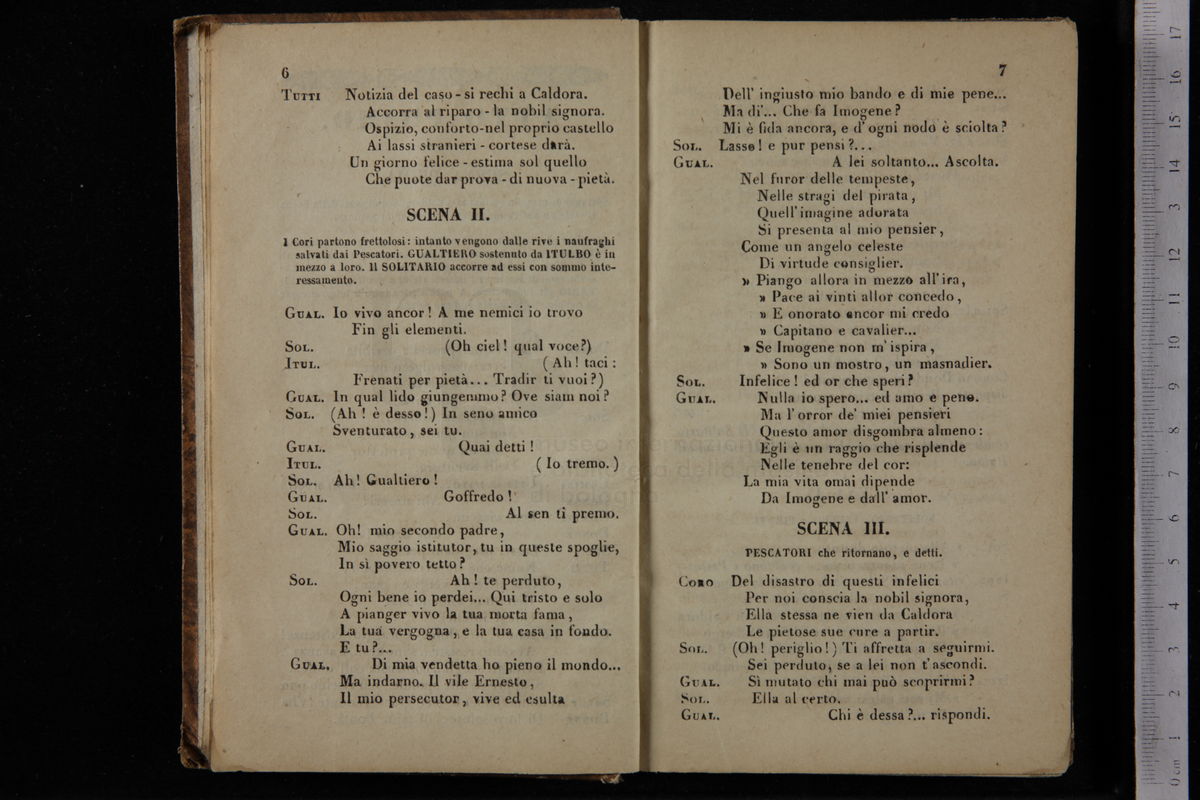 6
TUTTI Notizia del caso - si rechi a Caldora.
Accorra al riparo - la nobil signora.
Ospizio, conforto-nel proprio castello
Ai lassi stranieri - cortese darà.
Un giorno felice - estima sol quello
Che puote dar prova - di nuova - pietà.
SCENA II.
I Cori partono frettolosi: intanto vengono dalle rive i naufraghi
salvati dai Pescatori. GUALTIERO sostenuto da ITULBO è in
mezzo a loro. Il SOLITARIO accorre ad essi con sommo inte-
ressamento.
GUAL. Io vivo ancor! A me nemici io trovo
Fin gli elementi.
SOL. (Oh ciel! qual voce?)
ITUL. (Ah! taci:
Frenati per pietà... Tradir ti vuoi?)
GUAL. In qual lido giungemmo? Ove siam noi?
SOL. (Ah! è desso!) In seno amico
Sventurato, sei tu.
GUAL. Quai detti!
ITUL. (Io tremo.)
SOL. Ah! Gualtiero!
GUAL. Goffredo!
SOL. Al sen ti premo.
GUAL. Oh! mio secondo padre,
Mio saggio istitutor, tu in queste spoglie,
In sì povero tetto?
SOL. Ah! te perduto,
Ogni bene io perdei... Qui tristo e solo
A pianger vivo la tua morta fama,
La tua vergogna, e la tua casa in fondo.
E tu?...
GUAL. Di mia vendetta ho pieno il mondo...
Ma indarno. Il vile Ernesto,
Il mio persecutor, vive ed esulta
7
Dell' ingiusto mio bando e di mie pene...
Ma di'... Che fa Imogene?
Mi è fida ancora, e d' ogni nodo è sciolta?
SOL. Lasso! e pur pensi?...
GUAL. A lei soltanto... Ascolta.
Nel furor delle tempeste,
Nelle stragi del pirata,
Quell' imagine adorata
Si presenta al mio pensier,
Come un angelo celeste
Di virtude consiglier.
» Piango allora in mezzo all' ira,
» Pace ai vinti allor concedo,
» E onorato ancor mi credo
» Capitano e cavalier...
» Se Imogene non m' ispira,
» Sono un mostro, un masnadier.
SOL. Infelice! ed or che speri?
GUAL. Nulla io spero... ed amo e peno.
Ma l' orror de' miei pensieri
Questo amor disgombra almeno:
Egli è un raggio che risplende
Nelle tenebre del cor:
La mia vita omai dipende
Da Imogene e dall' amor.
SCENA III.
PESCATORI che ritornano, e detti.
CORO Del disastro di questi infelici
Per noi conscia la nobil signora,
Ella stessa ne vien da Caldora
Le pietose sue cure a partir.
SOL. (Oh! periglio!) Ti affretta a seguirmi.
Sei perduto, se a lei non t' ascondi.
GUAL. Sì mutato chi mai può scoprirmi?
SOL. Ella al certo.
GUAL. Chi è dessa?... rispondi.
museo internazionale
di bologna
0 cm 1 2 3 4 5 6 7 8 9 10 11 12 13 14 15 16 17